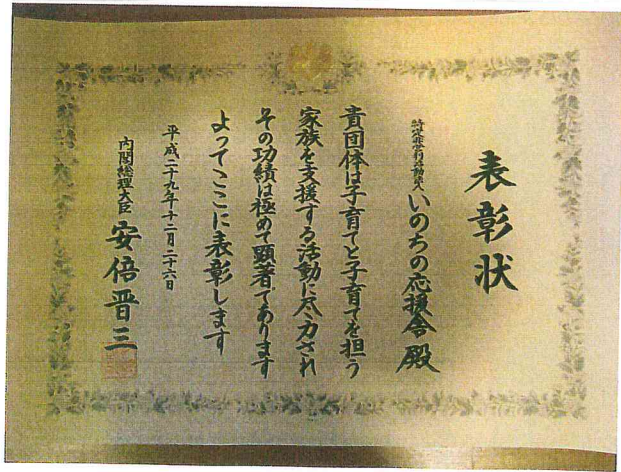 表彰状
特定非営利活動法人 いのちの応援舎 殿
貴団体は子育てと子育てを担う
家族を支援する活動に尽力され
その功績は極めて顕著であります
よってここに表彰します
平成二十九年十二月二十六日
内閣総理大臣 安倍晋三